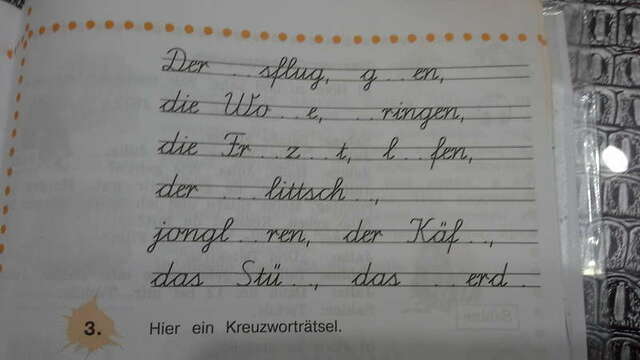 Der . . sflug, g . . en,
die Wo . . e, . . ringen,
die Fr . . z . . t, l . . fen,
der . . littsch . .,
jongl . . ren, der Käf . .,
das Stü . ., das . . erd .
3. Hier ein Kreuzworträtsel.